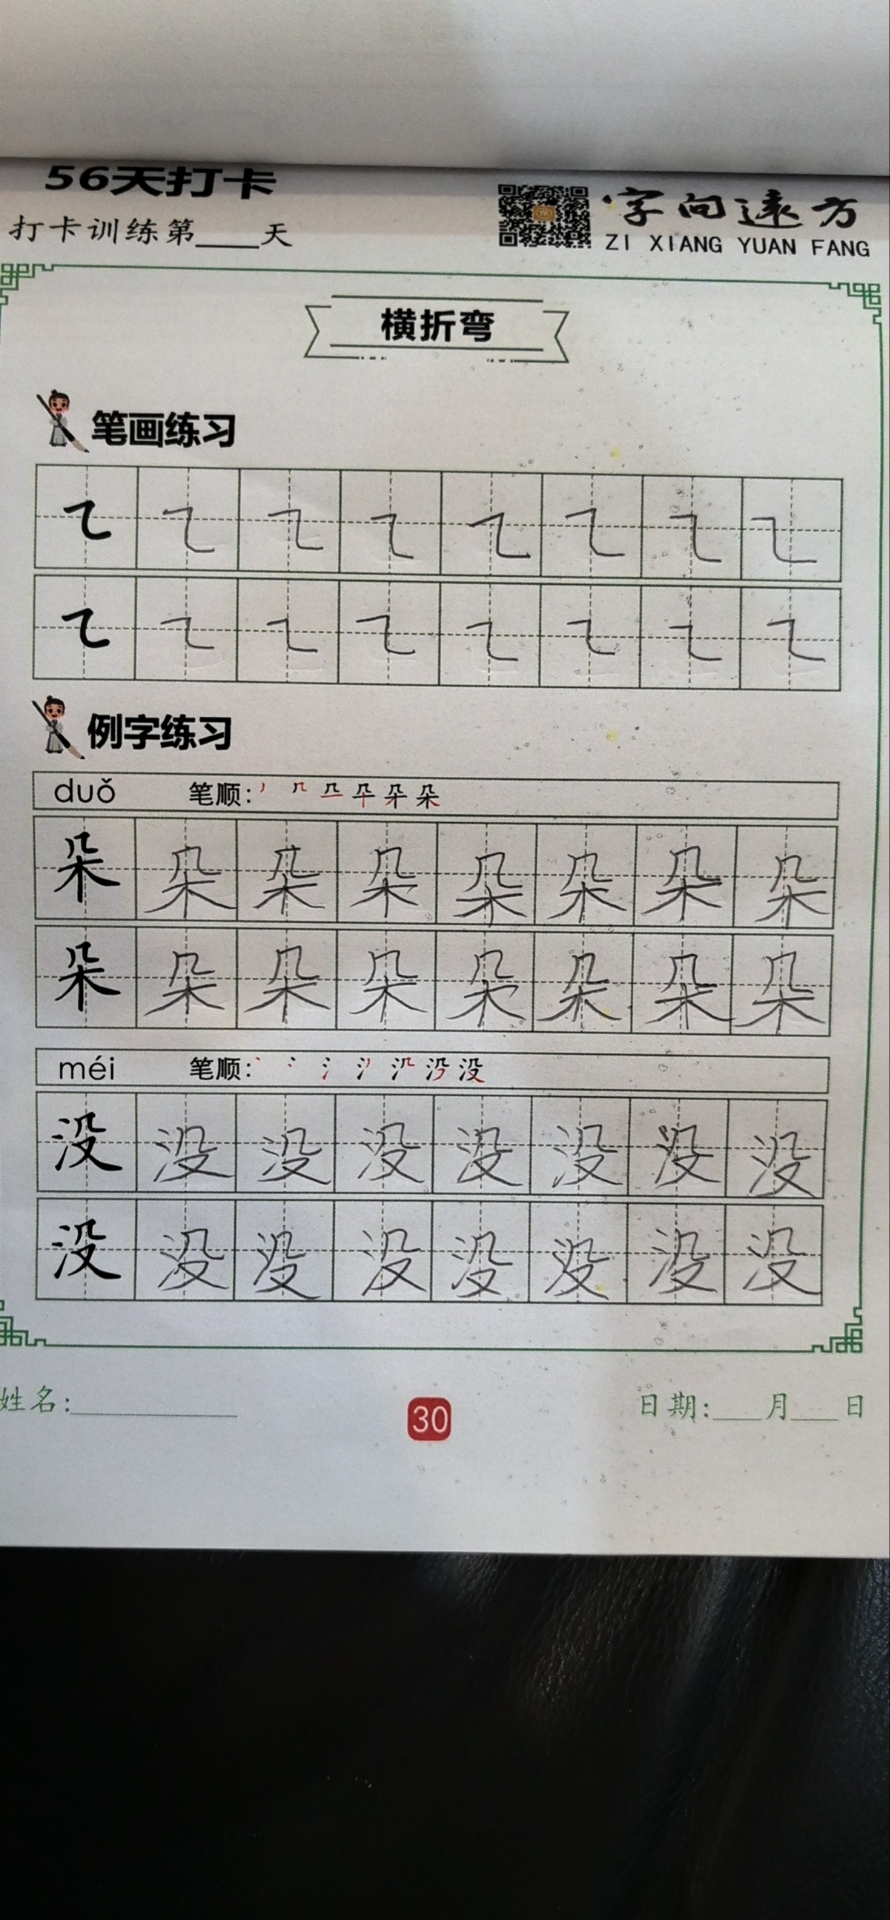 56天打卡
字向远方
打卡训练第____天
ZI XIANG YUAN FANG
横折弯
笔画练习
㇍ ㇍ ㇍ ㇍ ㇍ ㇍ ㇍ ㇍
㇍ ㇍ ㇍ ㇍ ㇍ ㇍ ㇍ ㇍
例字练习
duǒ 笔顺:
朵 朵 朵 朵 朵 朵 朵 朵
朵 朵 朵 朵 朵 朵 朵 朵
méi 笔顺:
没 没 没 没 没 没 没 没
没 没 没 没 没 没 没 没
姓名:__________ 30 日期:___月___日